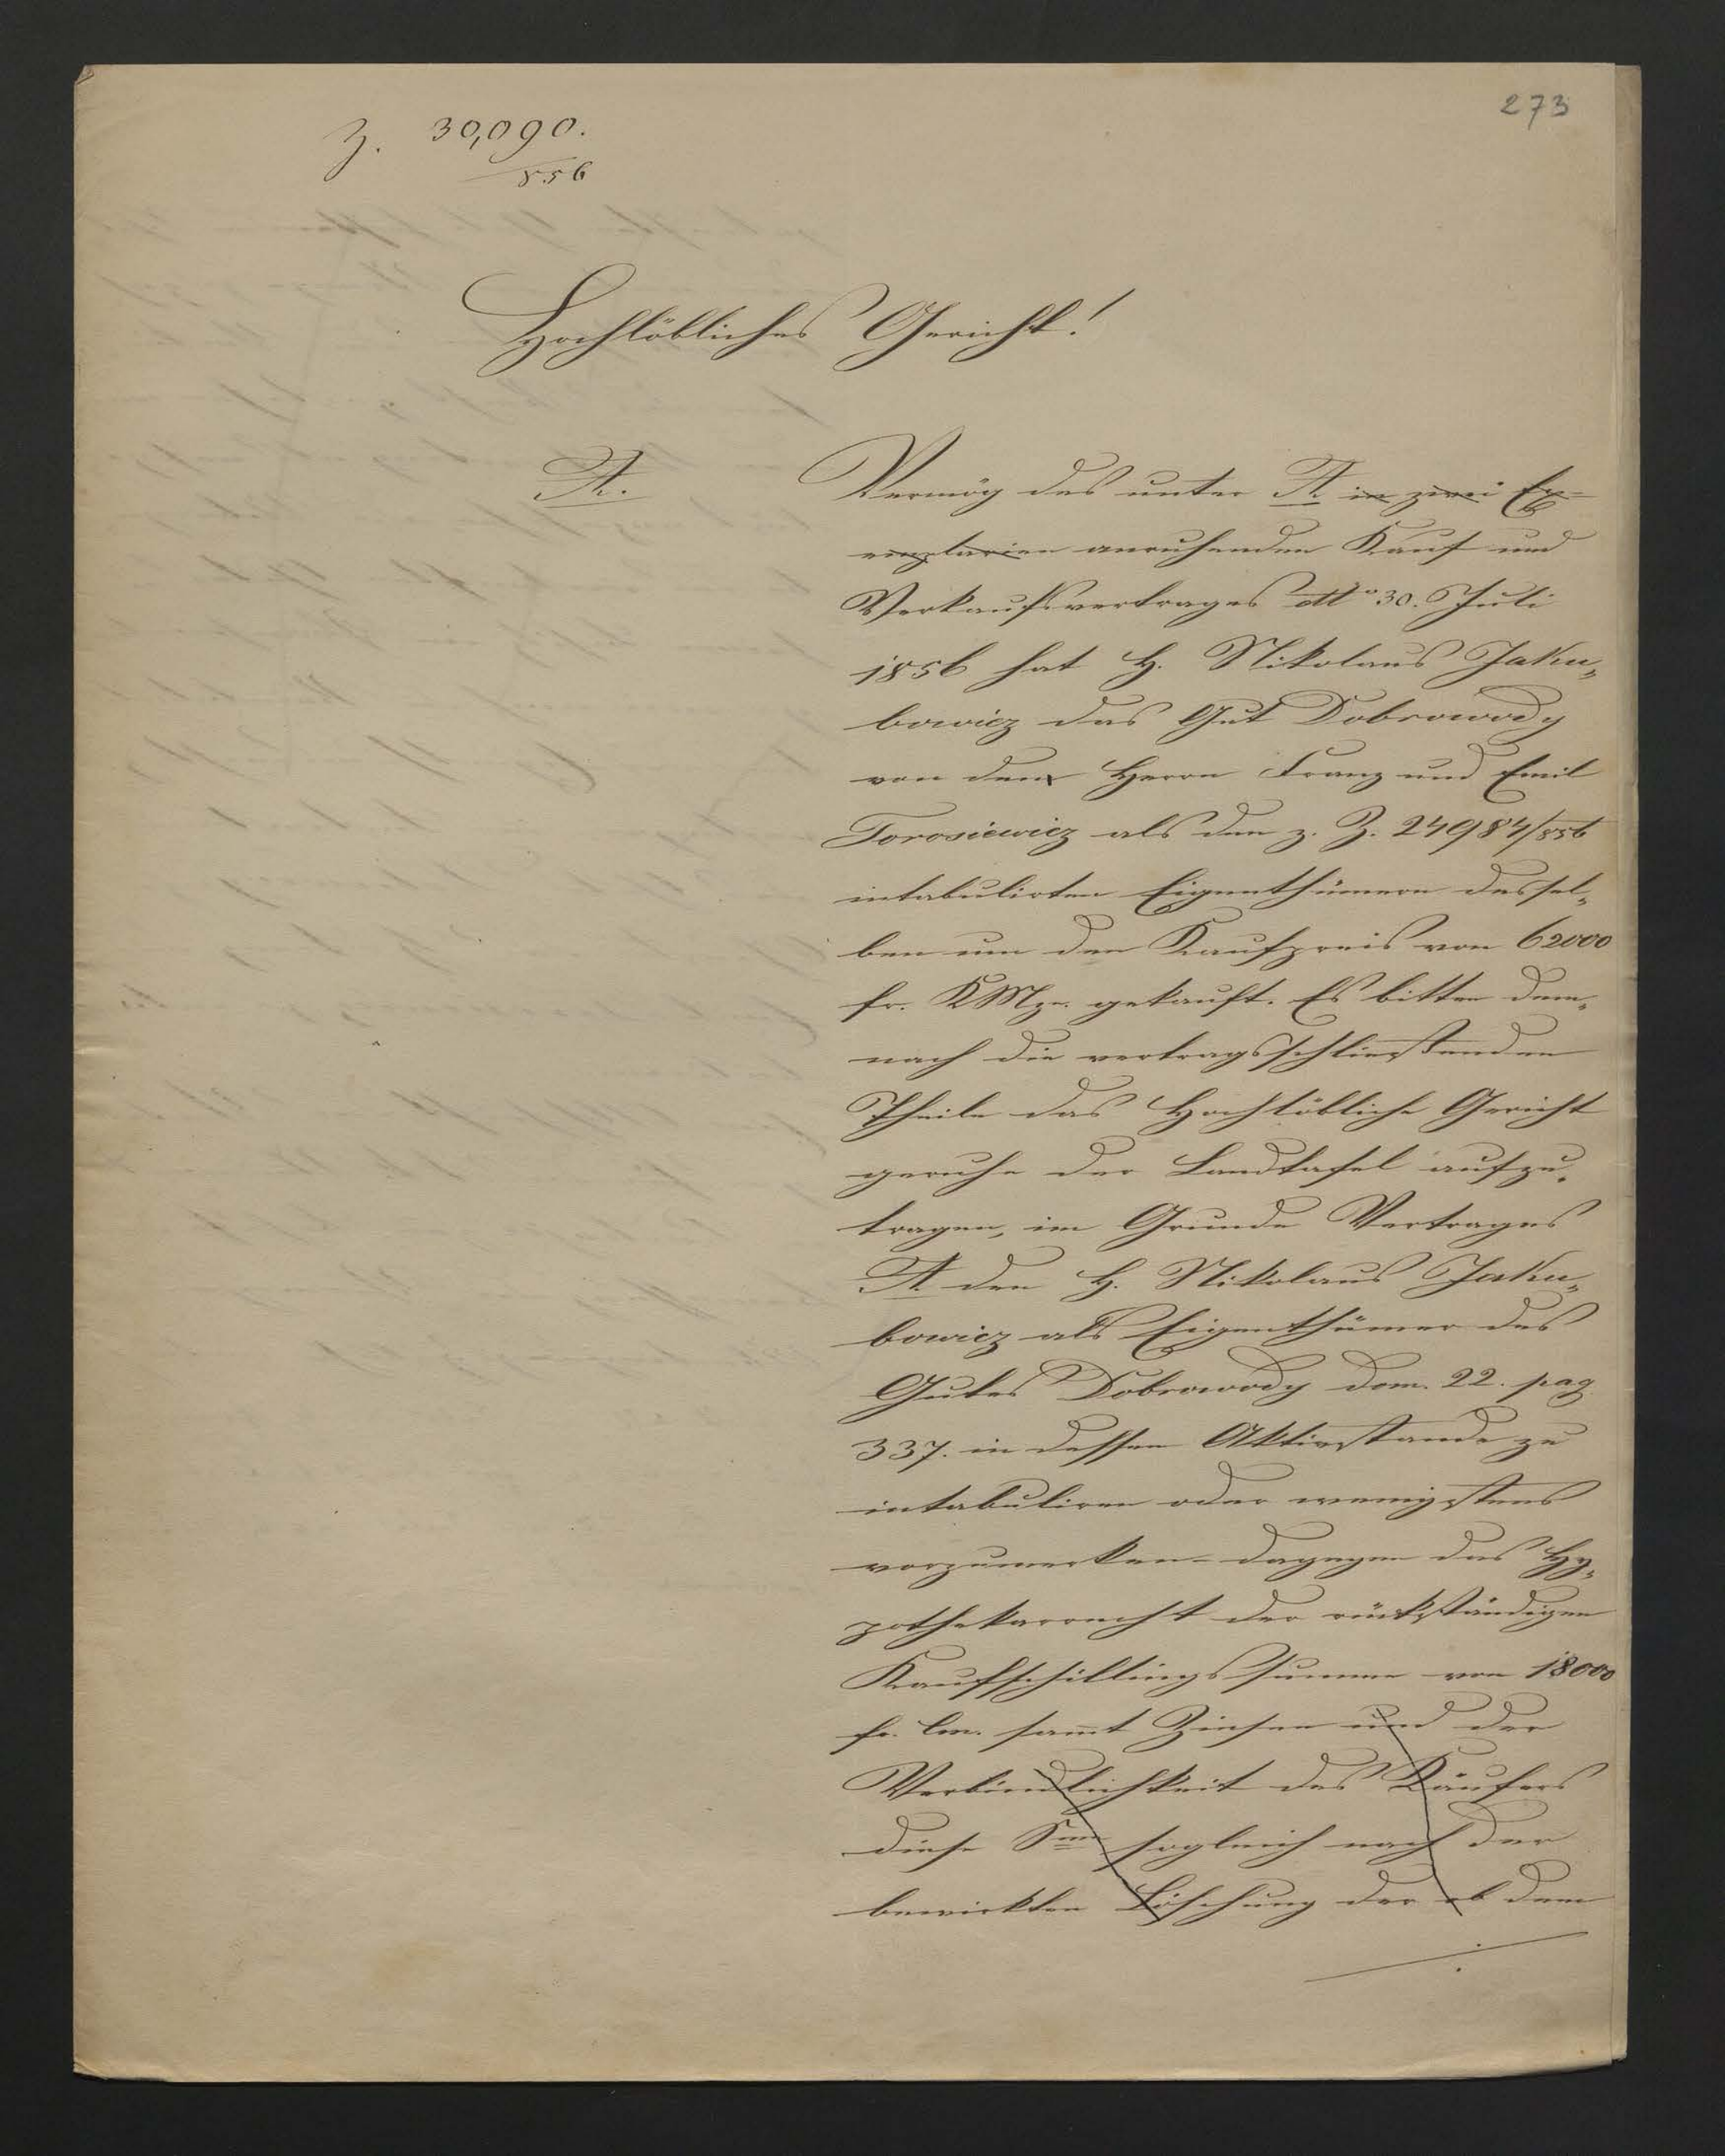 273
Z. 30,090.
856
Hochlöbliches Gericht!
A.
Vermög des unter A in zwei Ex=
emplarien anruhenden Kauf und
Verkaufsvertrages dtto 30. Juli
1856 hat H. Nikolaus Jaku„
bowicz das Gut Dobrowody
von den Herrn Franz und Emil
Torosiewicz als den z. Z. 24984/856
intabulirten Eigenthümern dessel„
ben um den Kaufpreis von 62000
fr. KMze. gekauft. Es bitten dem„
nach die vertragsschließenden
Theile das Hochlöbliche Gericht
geruhe der Landtafel aufzu„
tragen, im Grunde Vertrages
A den H. Nikolaus Jaku„
bowicz als Eigenthümer des
Gutes Dobrowody dom. 22. pag
337. in dessen Aktivstande zu
intabuliren oder wenigstens
vorzumerken - dagegen das Hy„
pothekarrecht der rückständigen
Kaufschillingssumme von 18000
fr. Cm. sammt Zinsen und der
Verbindlichkeit des Käufers
diese Sme sogleich nach der
bewirkten Löschung der ob dem